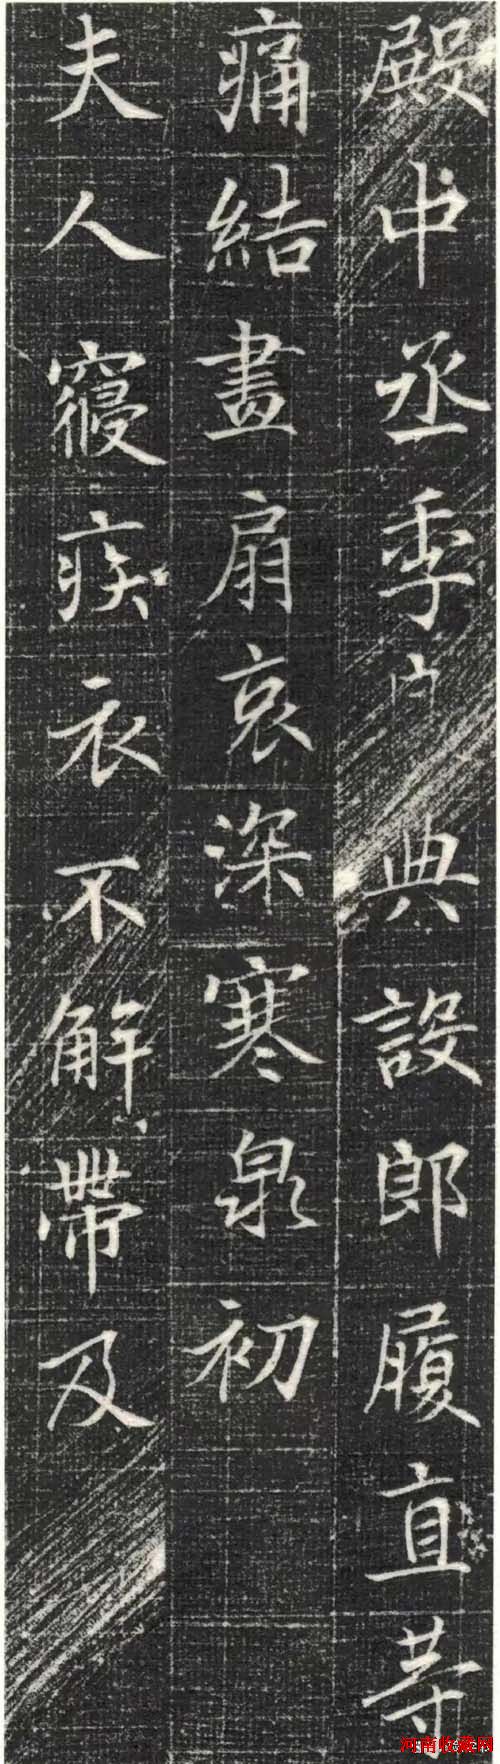 殿中丞季内典設郎履直等
痛結畫扇哀深寒泉初
夫人寢疾衣不解帶及
河南收藏网